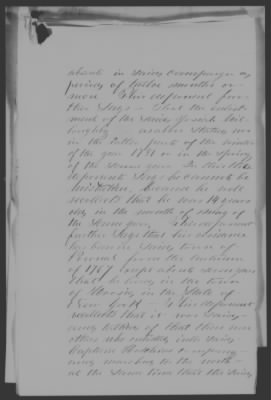 absent in said company a
period of twelve months or
more This deponent fur-
ther says — that the enlist-
ment of the said Josiah Wil-
loughby
in the latter part of the winter
of the year 1781 or in the spring
of the same year In that this
deponent says he cannot be
mistaken, because he well
recollects that he was 14 years
old, in the month of
the same year, This deponent
further says that his residence
has been in said town of
from the autumn
of 1787 except about seven years
that he lived in the town
of Hoosic in the State of
New York — This deponent
recollects that it was
talked of that there were
others who enlisted into said
Captain Hutchins company
marching to the north —
at the same time that the said